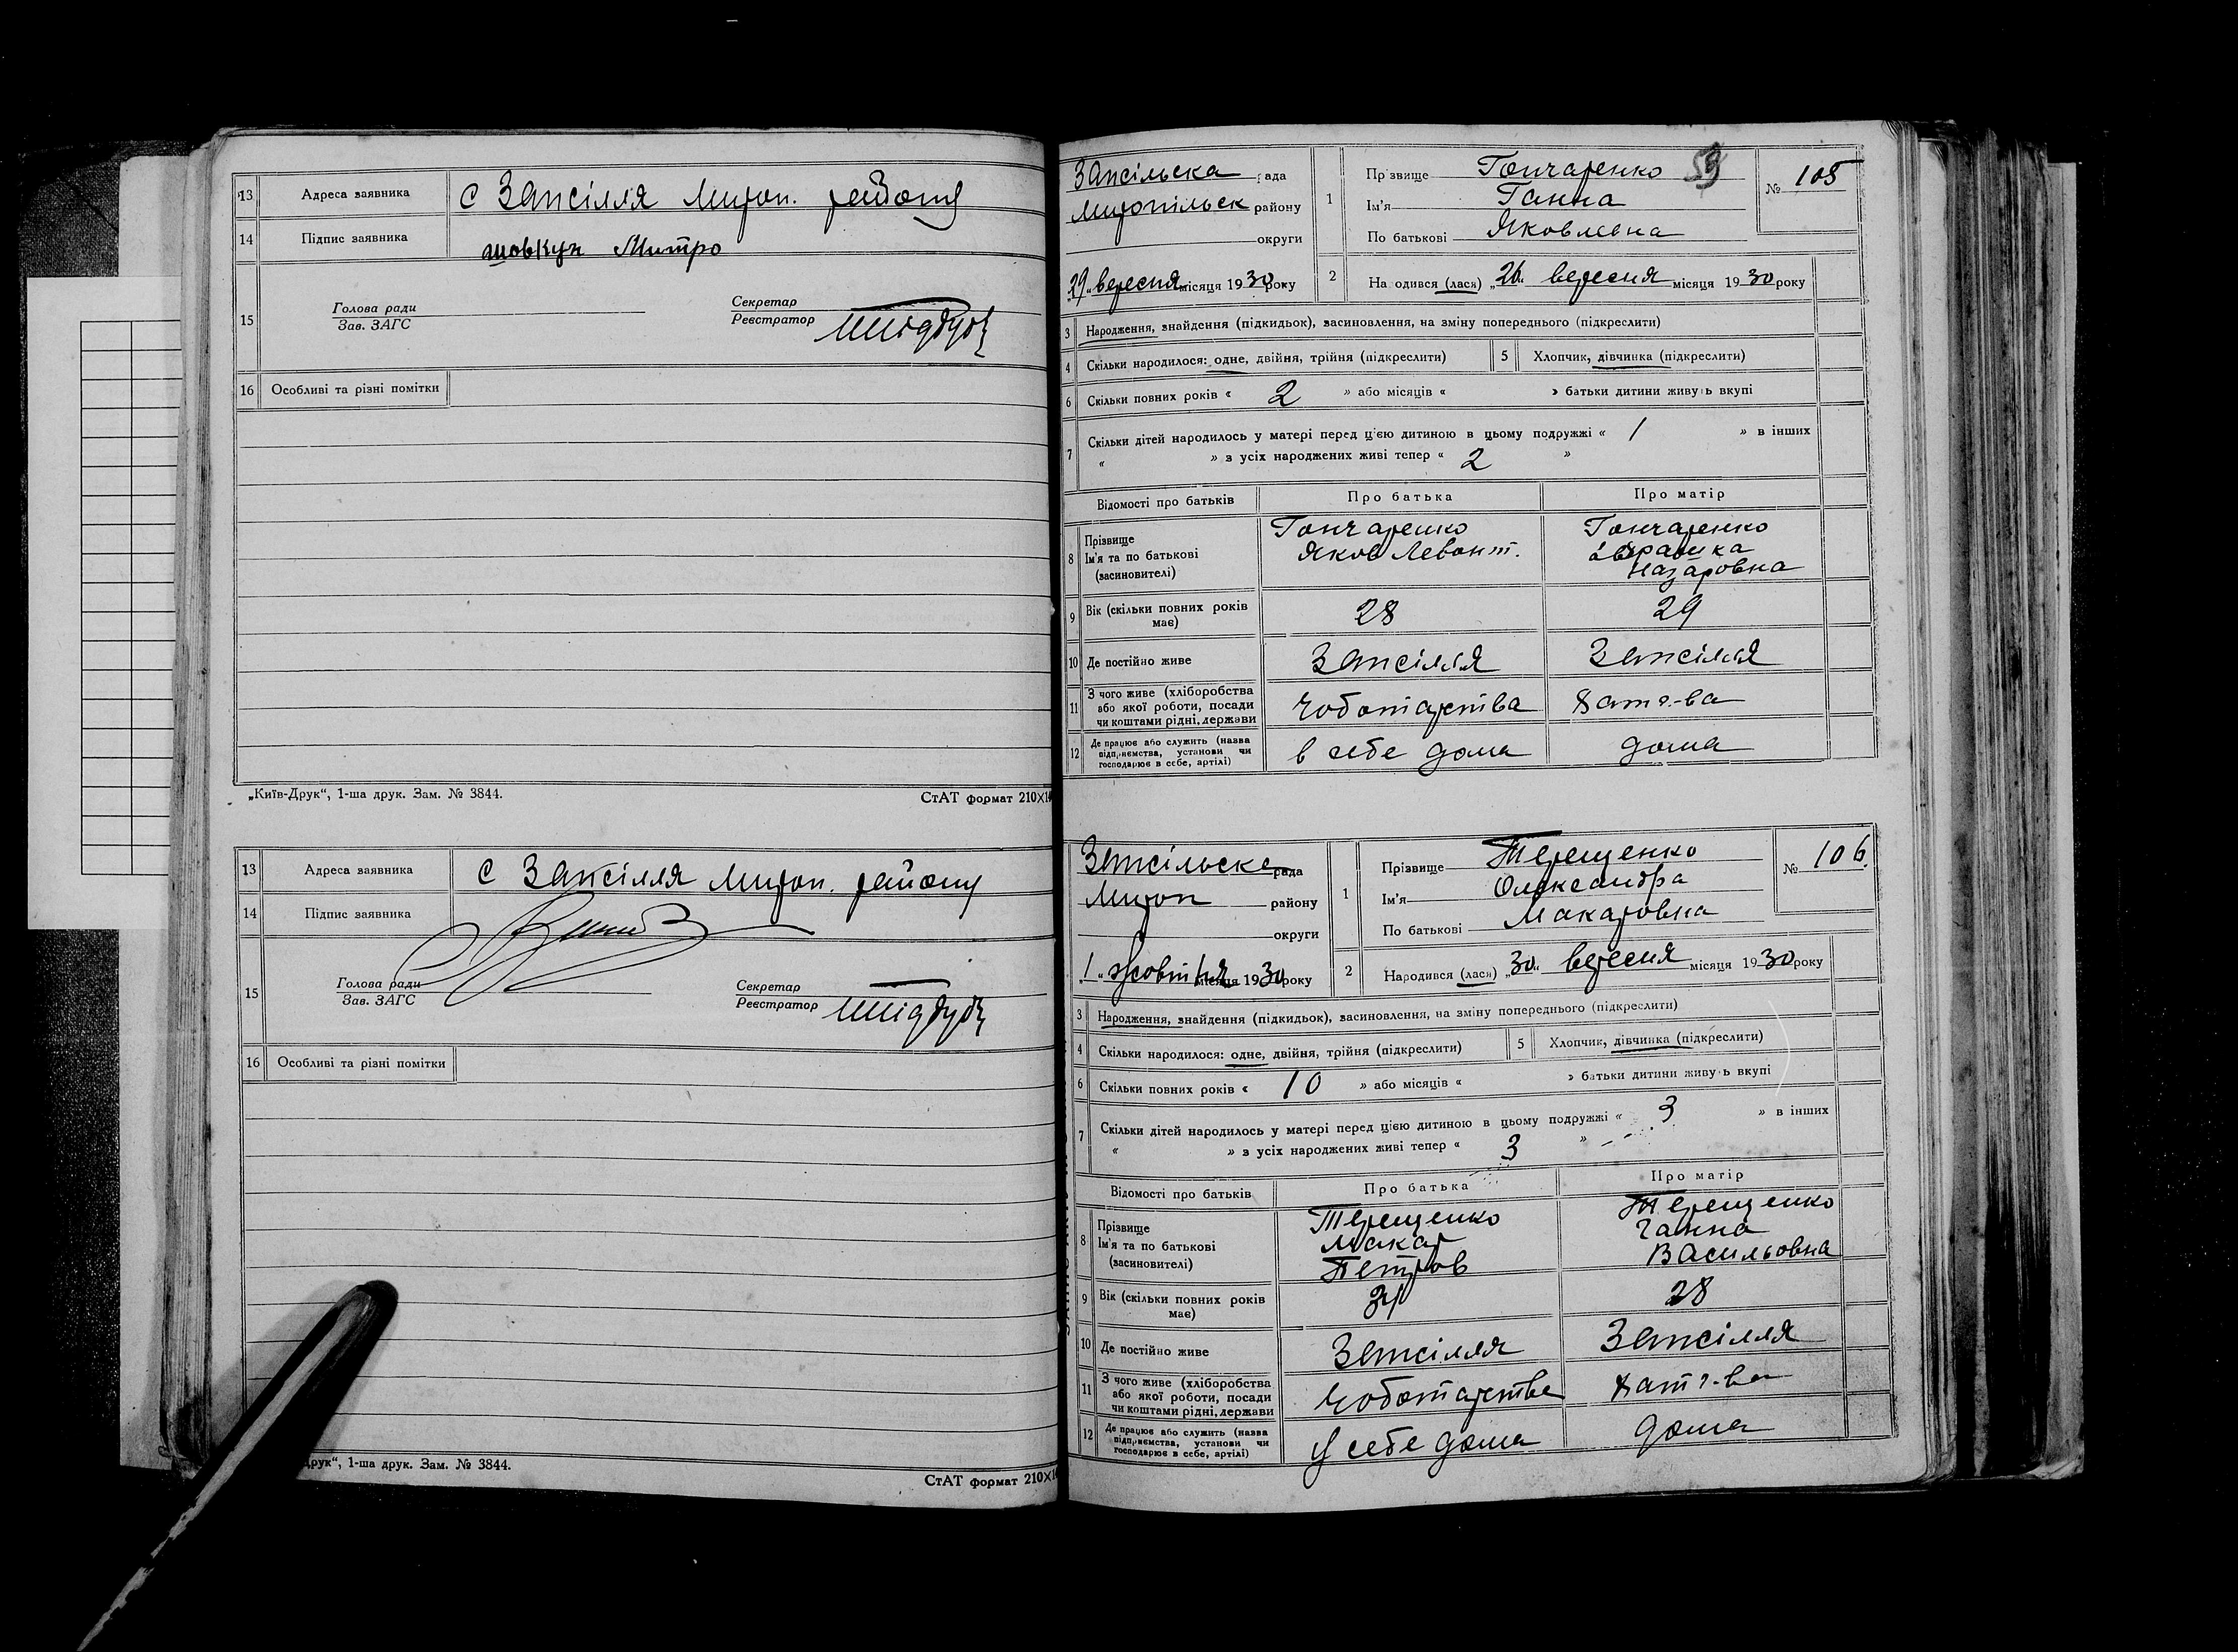 13 Адреса заявника с Запсілля Мироп. району
14 Підпис заявника шовкун Митро
15 Голова ради
Зав. ЗАГС
Секретар
Реєстратор
16 Особливі та різні помітки
„Київ-Друк“, 1-ша друк. Зам. № 3844.
СтАТ формат 210×1
13 Адреса заявника с Запсілля Мироп. району
14 Підпис заявника
15 Голова ради
Зав. ЗАГС
Секретар
Реєстратор
16 Особливі та різні помітки
друк“, 1-ша друк. Зам. № 3844.
СтАТ формат 210×1
Запсільска рада
Миропільск району
округи
„29“ вересня місяця 1930 року
1 Прізвище Гончаренко 59
Ім'я Ганна
По батькові Яковлевна
№ 105
2 Народився (лася) „26“ вересня місяця 1930 року
3 Народження, знайдення (підкидьок), васиновлення, на зміну попереднього (підкреслити)
4 Скільки народилося: одне, двійня, трійня (підкреслити) 5 Хлопчик, дівчинка (підкреслити)
6 Скільки повних років « 2 » або місяців « » батьки дитини живуть вкупі
7 Скільки дітей народилось у матері перед цією дитиною в цьому подружжі « 1 » в інших
« » з усіх народжених живі тепер « 2 »
Відомості про батьків Про батька Про матір
8 Прізвище
Ім'я та по батькові
(васиновителі)
Гончаренко
Яков Левонт.
Гончаренко
Назаровна
9 Вік (скільки повних років має) 28 29
10 Де постійно живе Запсілля Запсілля
11 З чого живе (хліборобства
або якої роботи, посади
чи коштами рідні, держави
чоботарства хатн.-ва
12 Де працює або служить (назва
підприємства, установи чи
господарює в себе, артілі)
в себе дома дома
Запсільска рада
Мироп району
округи
„1“ жовтня місяця 1930 року
1 Прізвище Терещенко
Ім'я Олександра
По батькові Макаровна
№ 106.
2 Народився (лася) „30“ вересня місяця 1930 року
3 Народження, знайдення (підкидьок), васиновлення, на зміну попереднього (підкреслити)
4 Скільки народилося: одне, двійня, трійня (підкреслити) 5 Хлопчик, дівчинка (підкреслити)
6 Скільки повних років « 10 » або місяців « » батьки дитини живуть вкупі
7 Скільки дітей народилось у матері перед цією дитиною в цьому подружжі « 3 » в інших
« » з усіх народжених живі тепер « 3 »
Відомості про батьків Про батька Про матір
8 Прізвище
Ім'я та по батькові
(васиновителі)
Терещенко
Макар
Петров
Терещенко
Ганна
Васильовна
9 Вік (скільки повних років має) 28
10 Де постійно живе Запсілля Запсілля
11 З чого живе (хліборобства
або якої роботи, посади
чи коштами рідні, держави
чоботарства хатн.-ва
12 Де працює або служить (назва
підприємства, установи чи
господарює в себе, артілі)
У себе дома дома